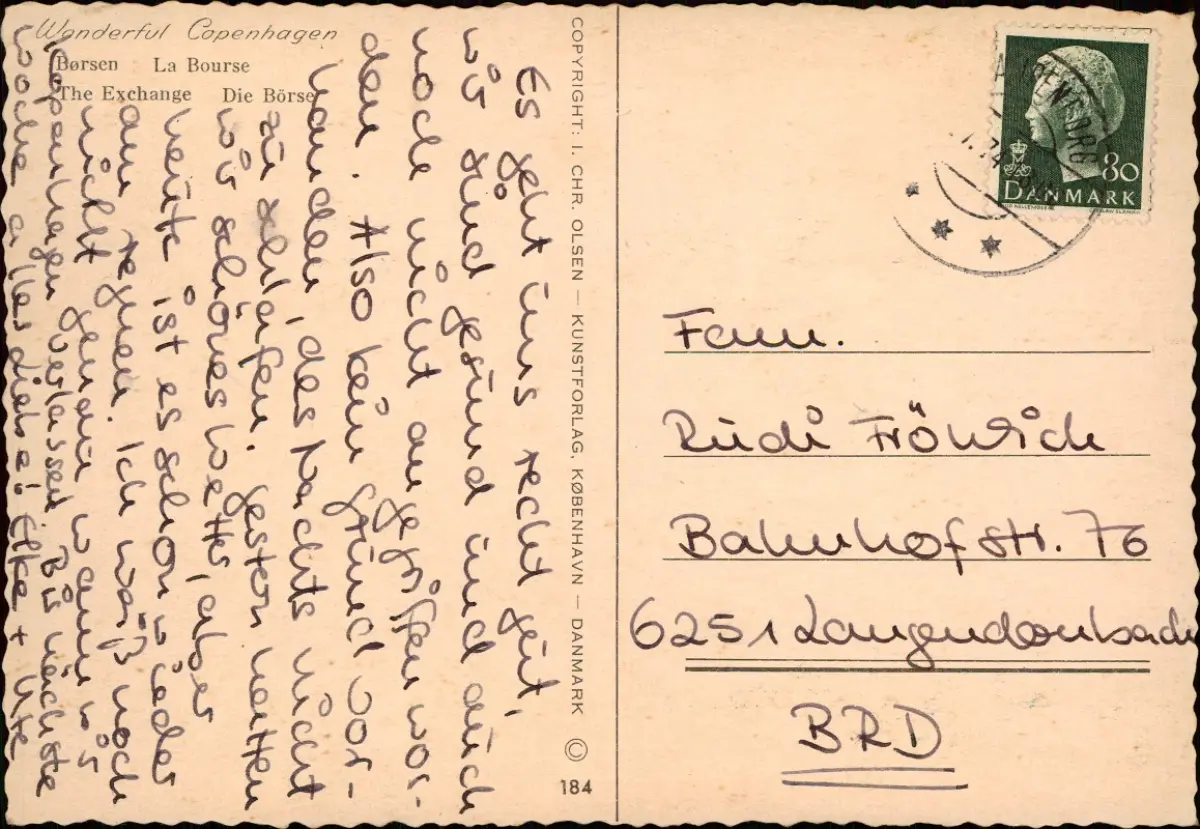 Wonderful Copenhagen
Børsen La Bourse
The Exchange Die Börse
Es geht uns recht gut,
wir sind gesund und auch
noch nicht angegriffen wor-
den. Also kein Grund vor-
handen, des Nachts nicht
zu schlafen. Gestern hatten
wir schönes Wetter, aber
heute ist es schon wieder
am regnen. Ich weiß noch
nicht genau wann wir
Kopenhagen verlassen. Bis nächste
Woche alles Liebe! Elke + Ute
COPYRIGHT: I. CHR. OLSEN — KUNSTFORLAG, KØBENHAVN — DANMARK ©
184
80
DANMARK
Fam.
Rudi Fröhlich
Bahnhofstr. 76
6251 Langendernbach
BRD